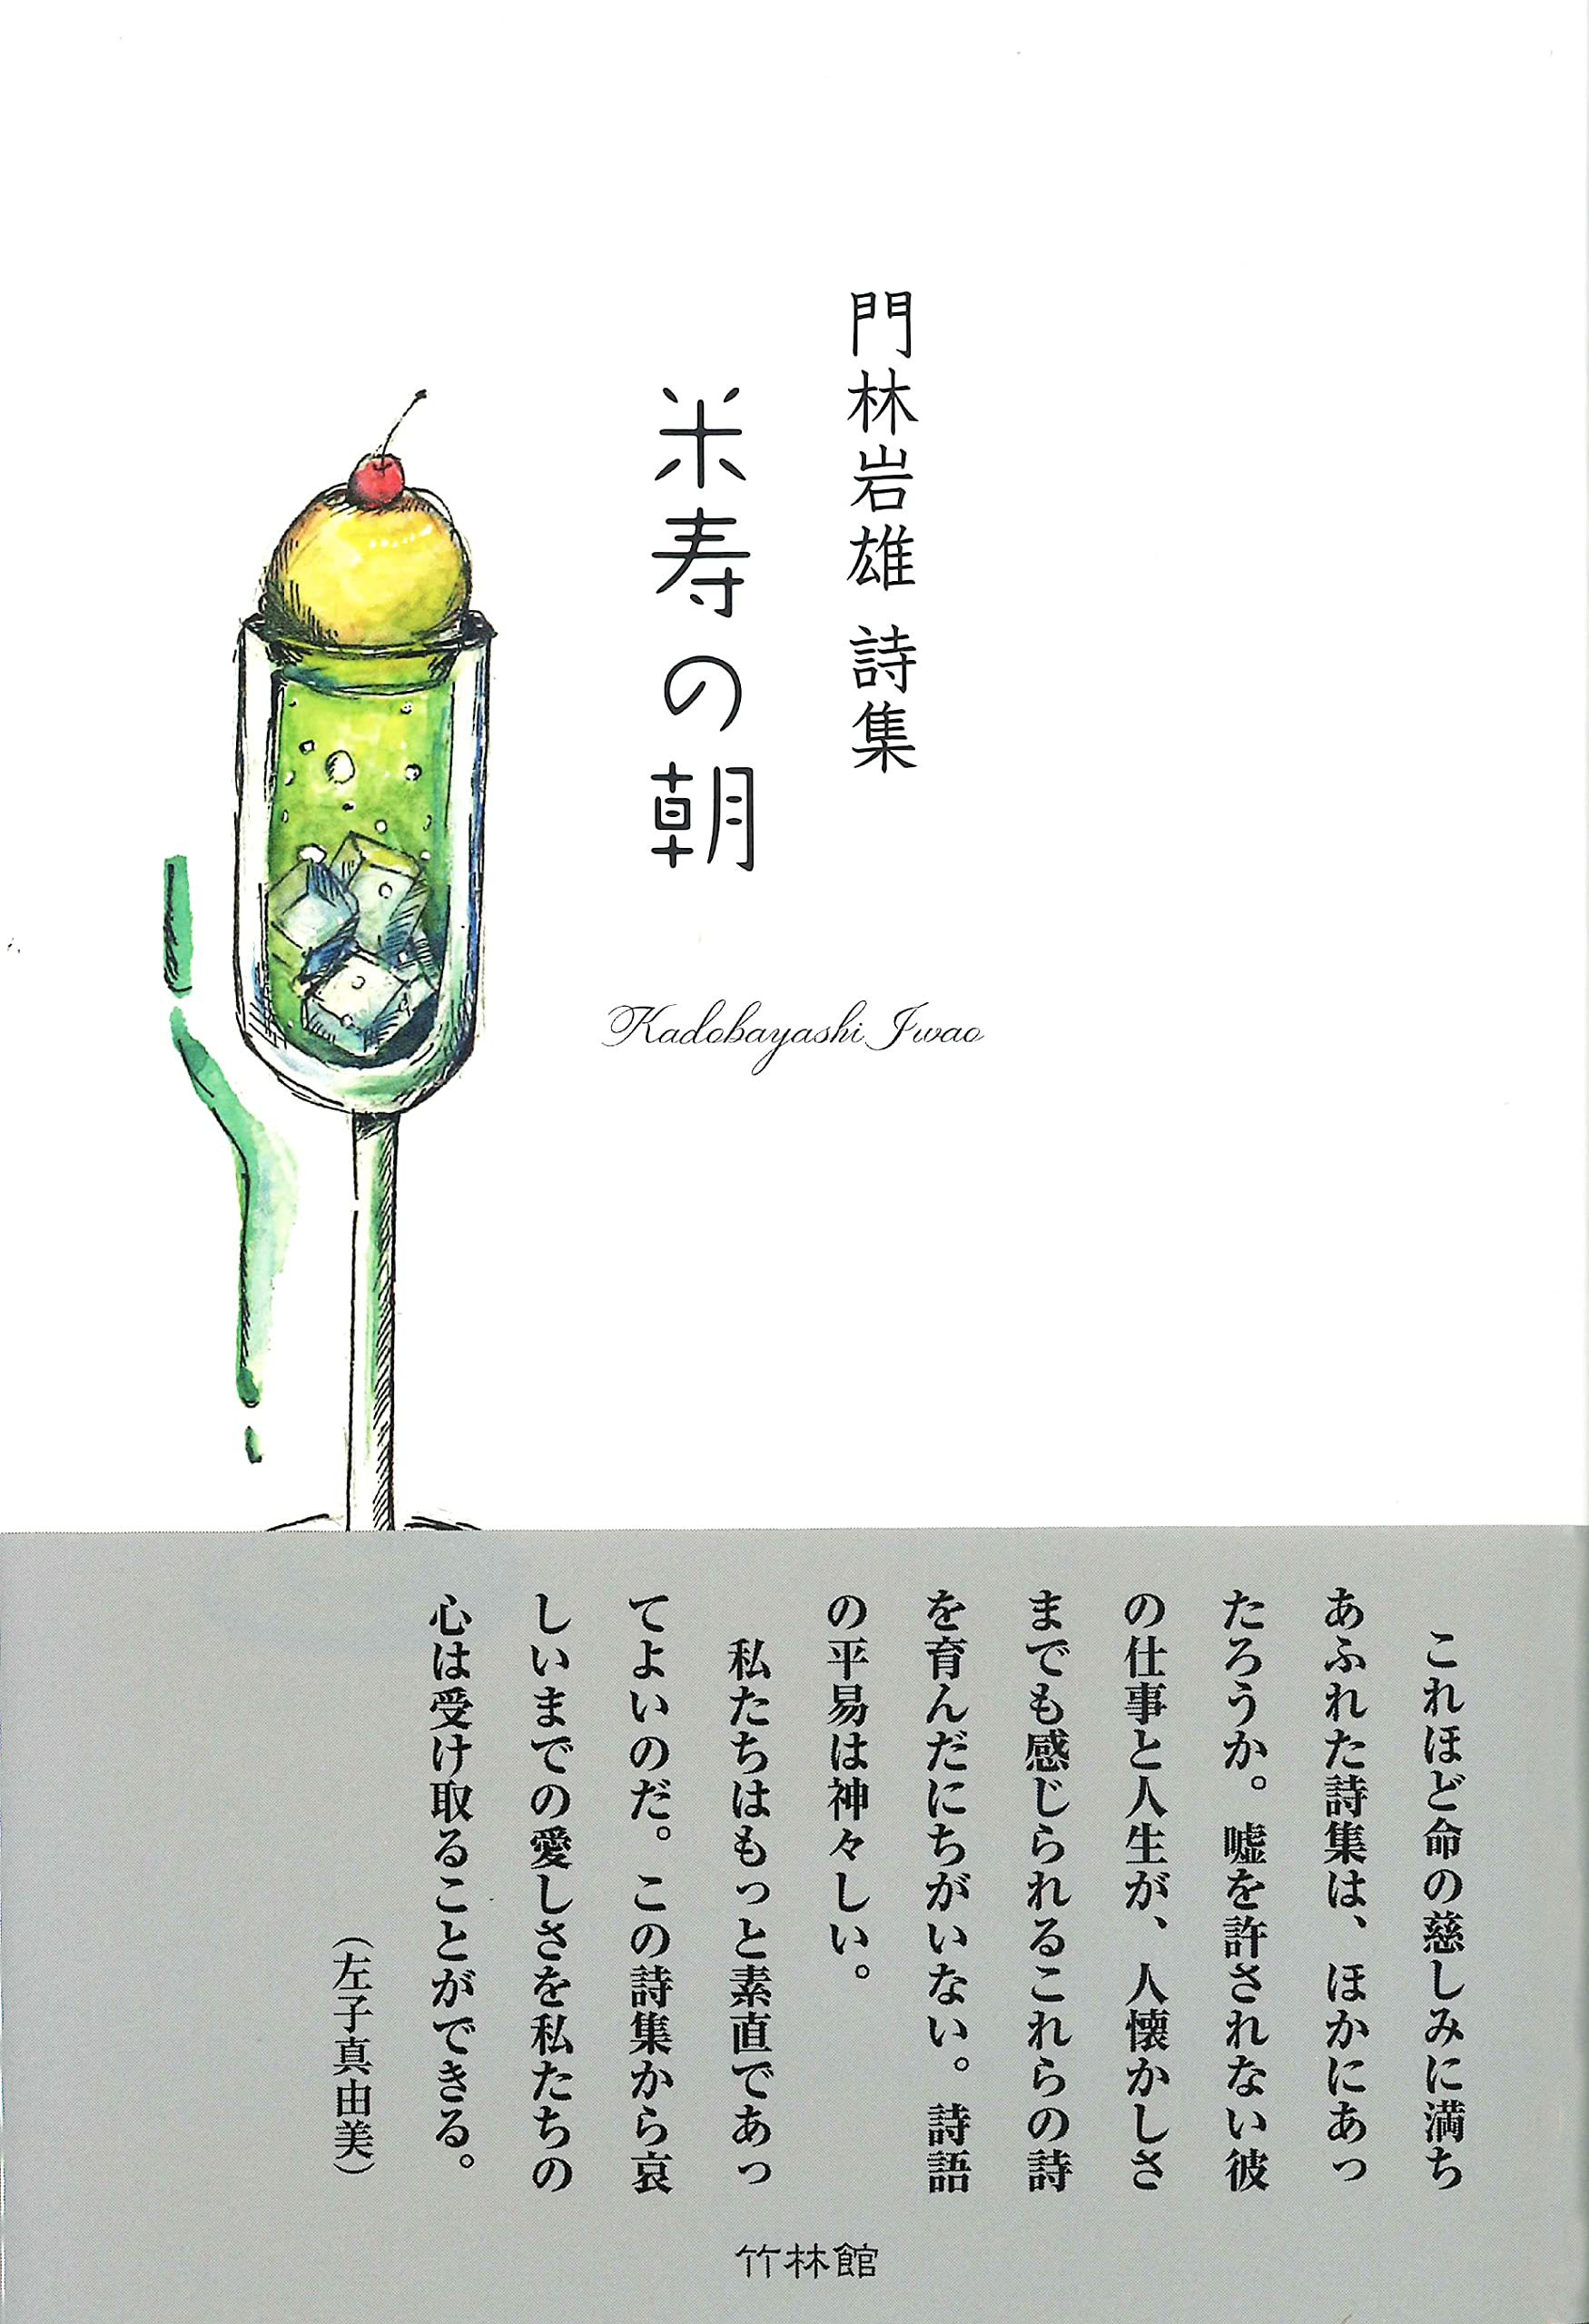 門林岩雄 詩集
米寿の朝
Kadobayashi Iwao
これほど命の慈しみに満ち
あふれた詩集は、ほかにあっ
たろうか。嘘を許されない彼
の仕事と人生が、人懐かしさ
までも感じられるこれらの詩
を育んだにちがいない。詩語
の平易は神々しい。
私たちはもっと素直であっ
てよいのだ。この詩集から哀
しいまでの愛しさを私たちの
心は受け取ることができる。
（左子真由美）
竹林館